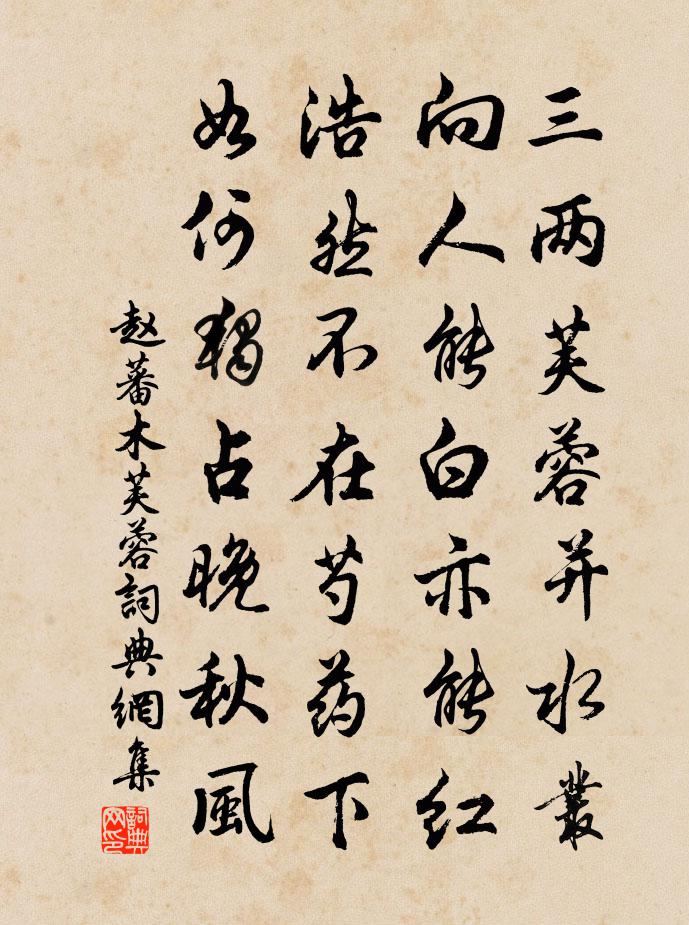 三两芙蓉并水叢
向人能白亦能红
浩然不在芍药下
如何独占晚秋風
赵蕃木芙蓉詞典網集
詞典网印